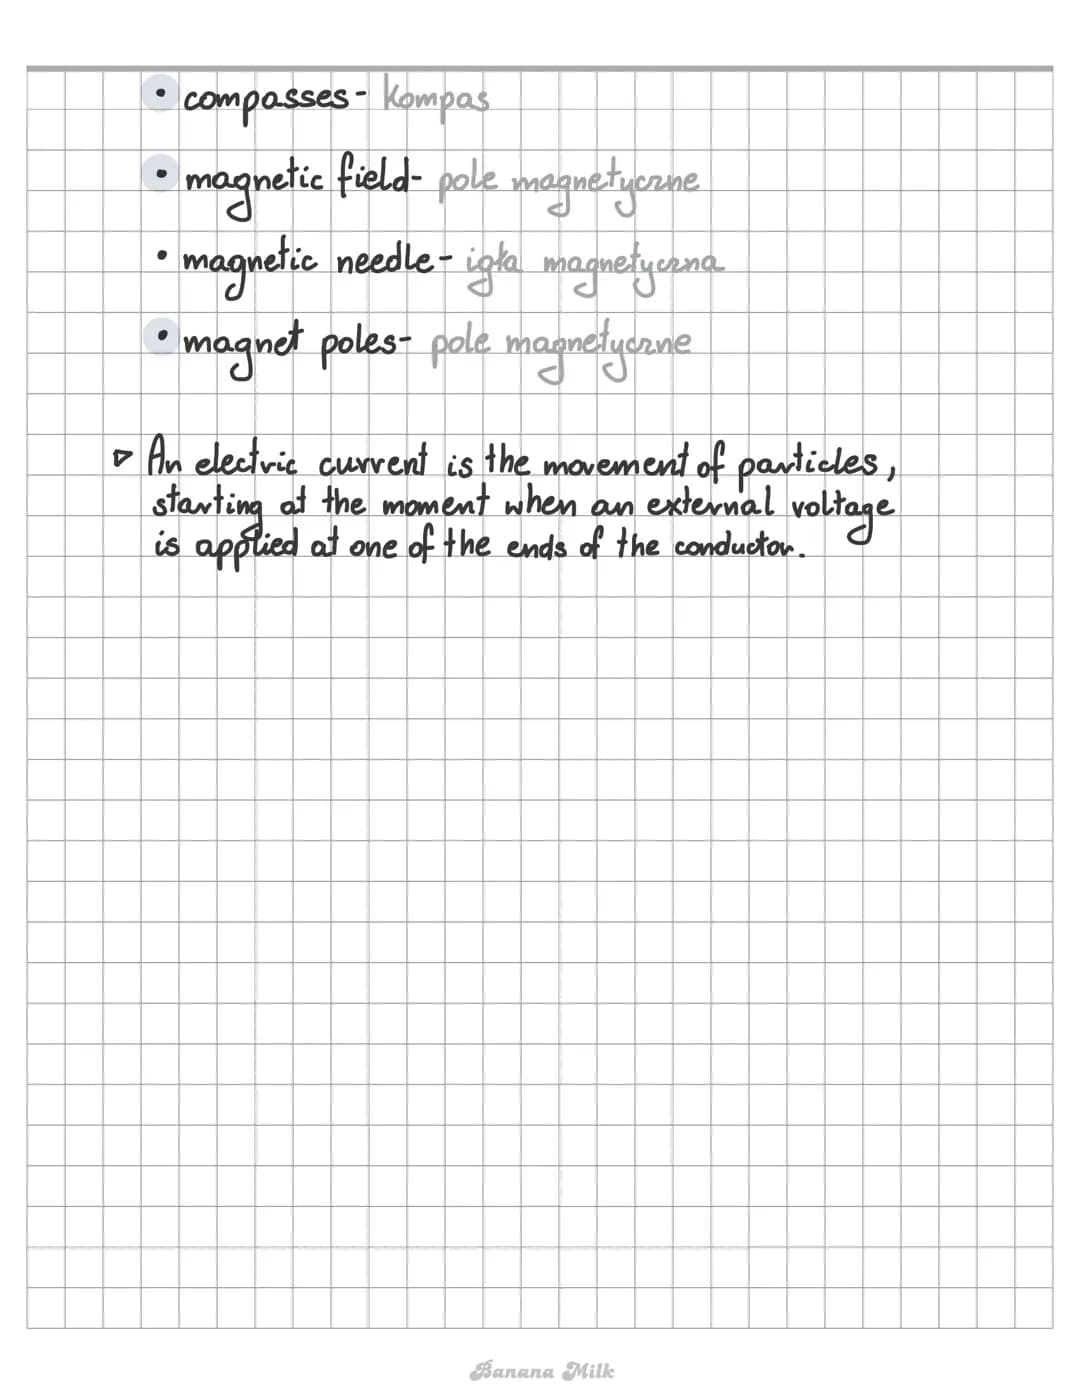 • compasses - kompas
• magnetic field - pole magnetyczne
• magnetic needle - igła magnetyczna
• magnet poles - pole magnetyczne
▷ An electric current is the movement of particles,
starting at the moment when an external voltage
is applied at one of the ends of the conductor.
Banana Milk